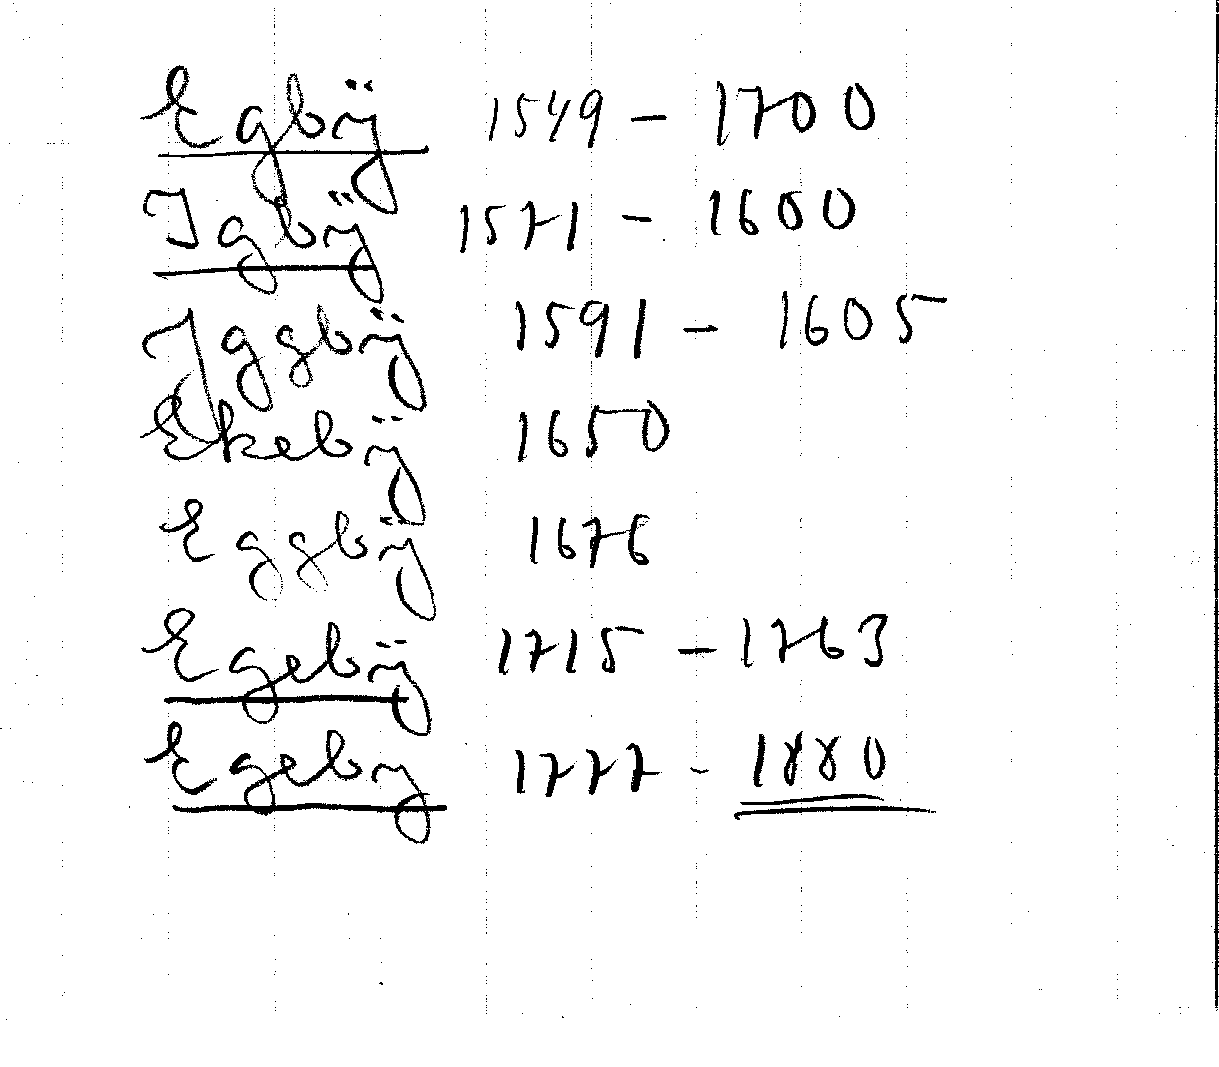 Egbÿ 1549 - 1700
Igbÿ 1571 - 1600
Jggbÿ 1591 - 1605
Ekebÿ 1650
Eggbÿ 1676
Egebÿ 1715 - 1763
Egeby 1777 - 1880